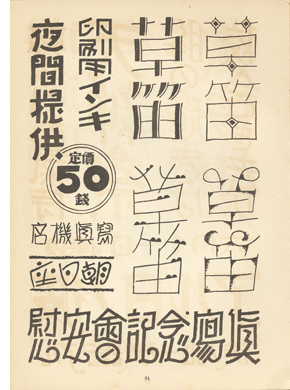 草笛
草笛
草笛
草笛
印刷用インキ
夜間提供
定價
50
錢
朝日座
慰安會記念寫眞